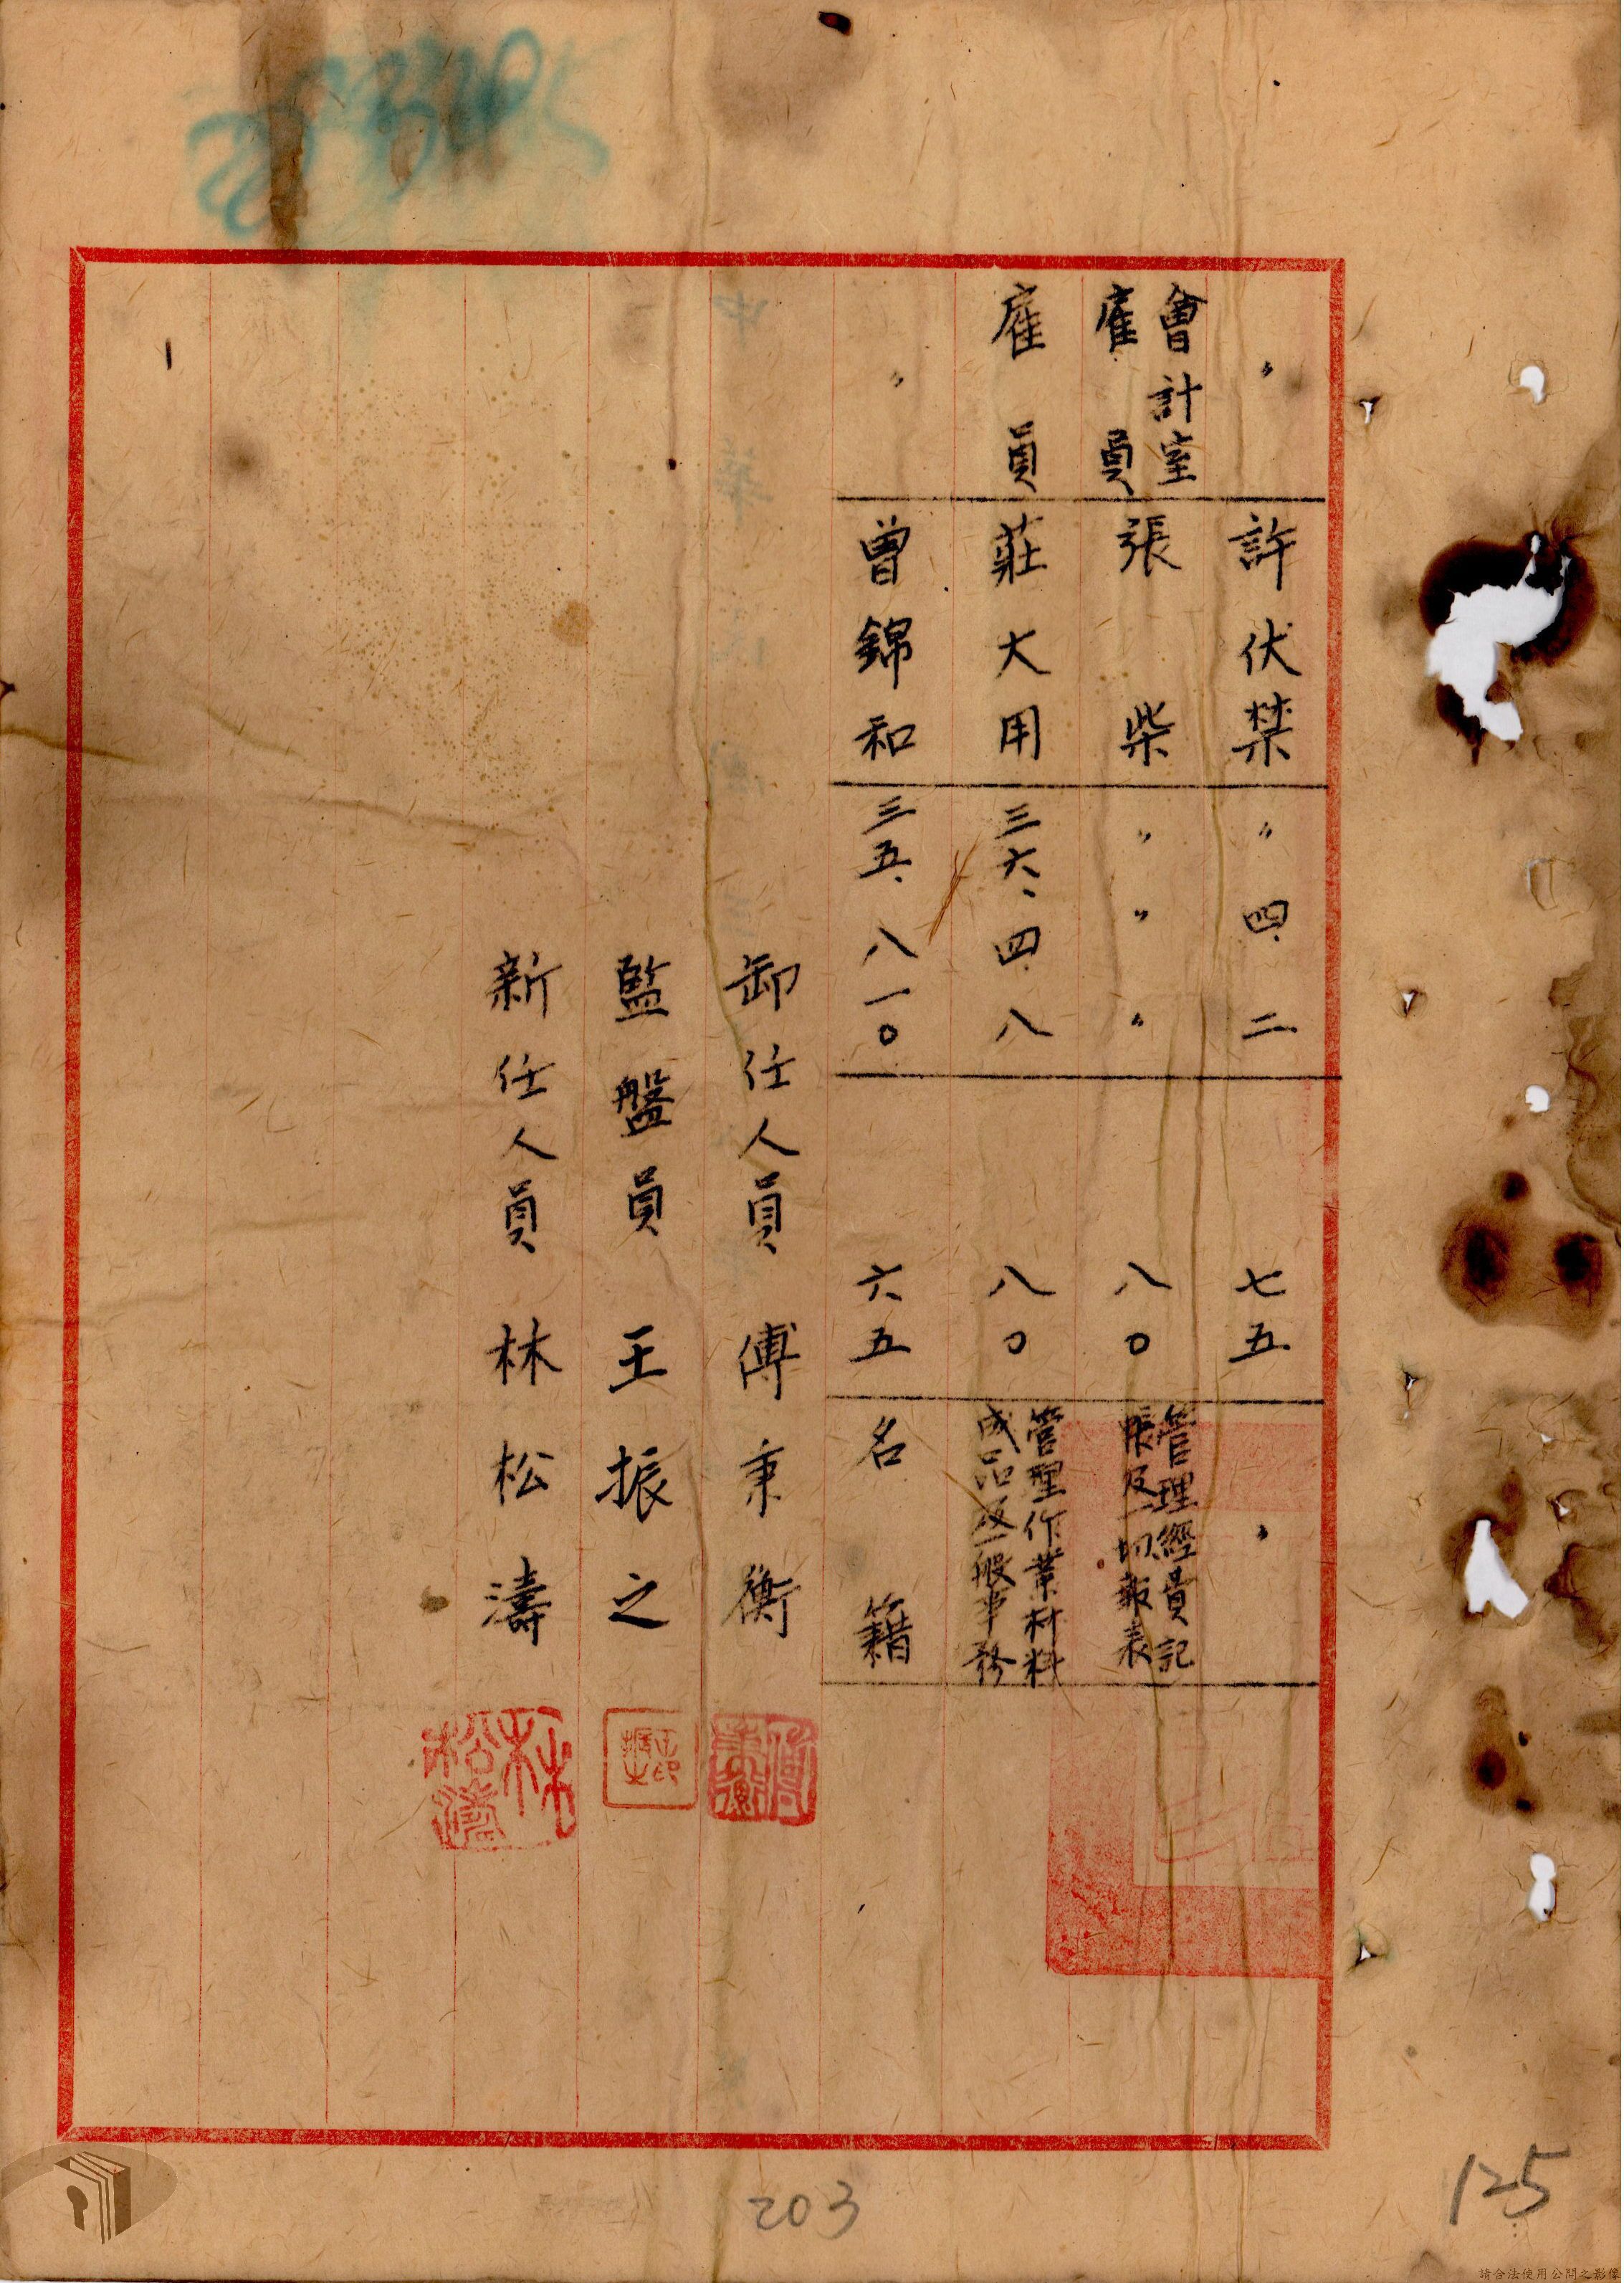 〃 許伏禁 〃四.二 七五 〃
會計室
雇員 張柴 〃〃〃 八〇 管理經費記
賬及一切報表
雇員 莊大用 三六、四.八 八〇 管理作業材料
成品及一般事務
〃 曾錦和 三五、八一〇 六五 名籍
卸任人員 傅秉衡
監盤員 王振之
新任人員 林松濤
傅秉衡
王振之印
林松濤
203
125
請合法使用公開之影像